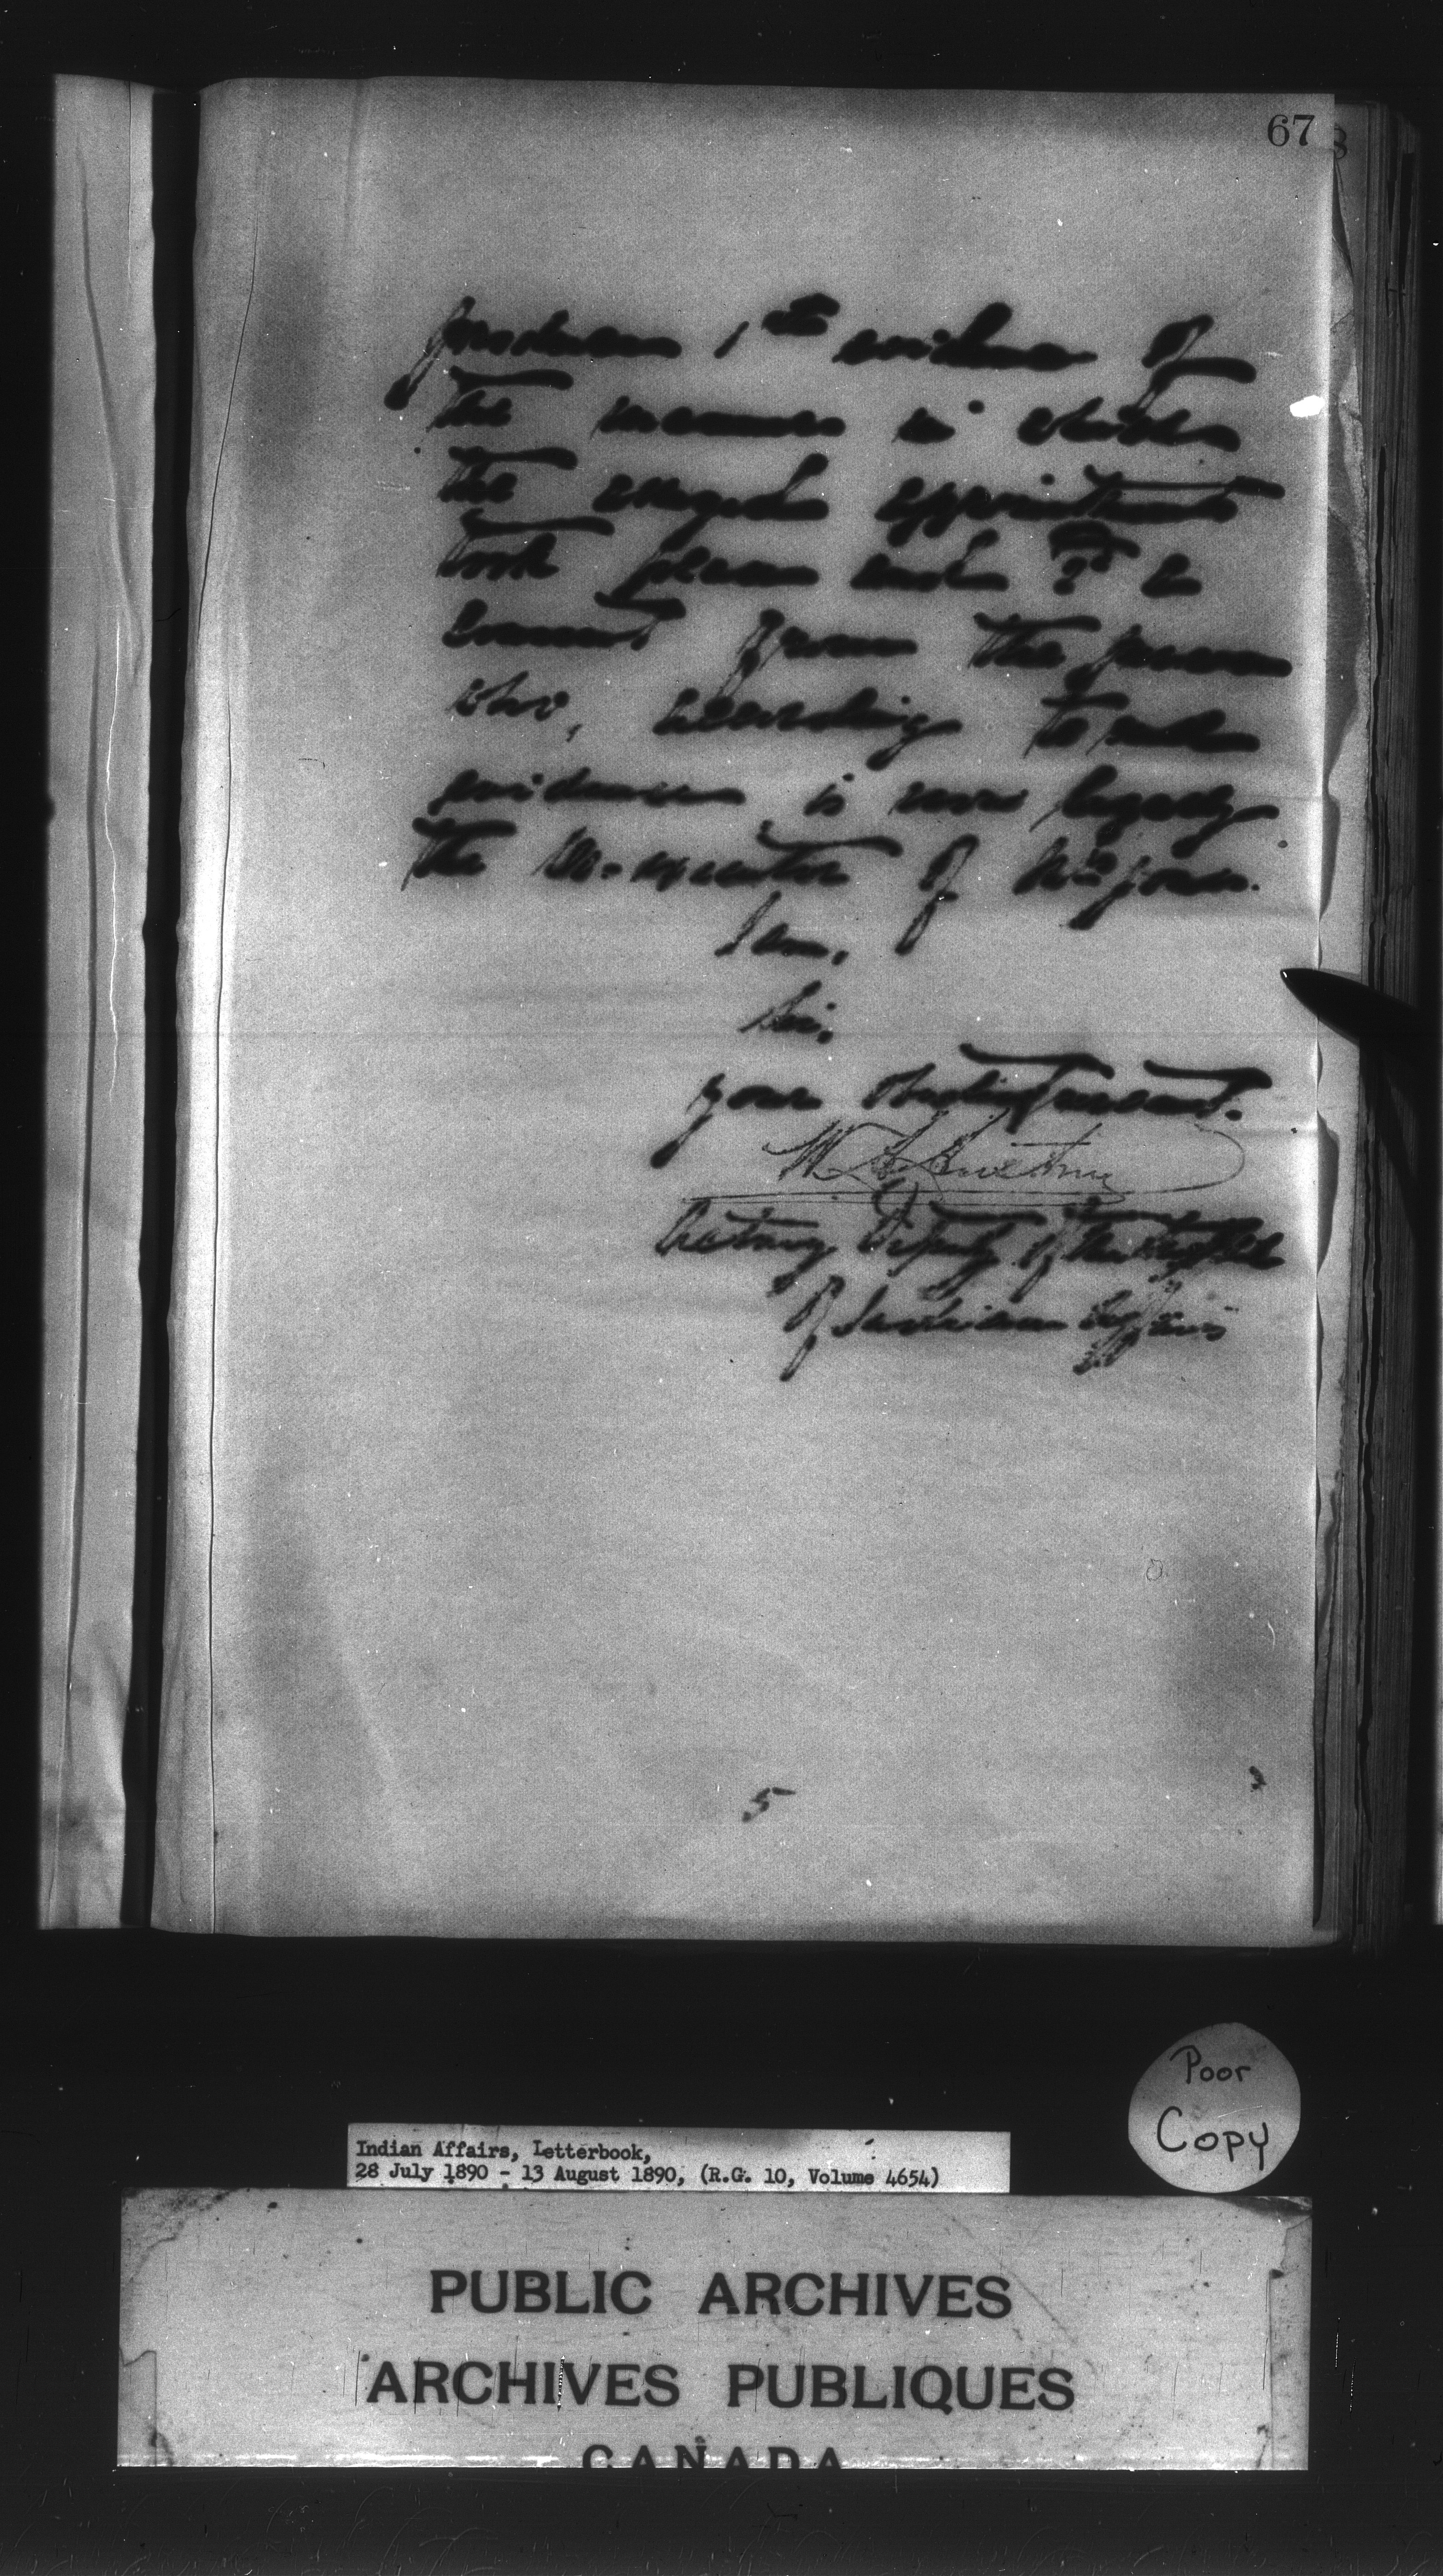 67
produces 1st evidence of
the manner in which
the alleged appointment
took place and 2nd a
consent from the person
who, according to such
evidence is now legally
the Co-executor of Mrs Jones.
I am,
Sir,
your obedient servant.
Acting Deputy of the
of Indian Affairs
5
Poor
Copy
Indian Affairs, Letterbook,
28 July 1890 - 13 August 1890, (R.G. 10, Volume 4654)
PUBLIC ARCHIVES
ARCHIVES PUBLIQUES
CANADA